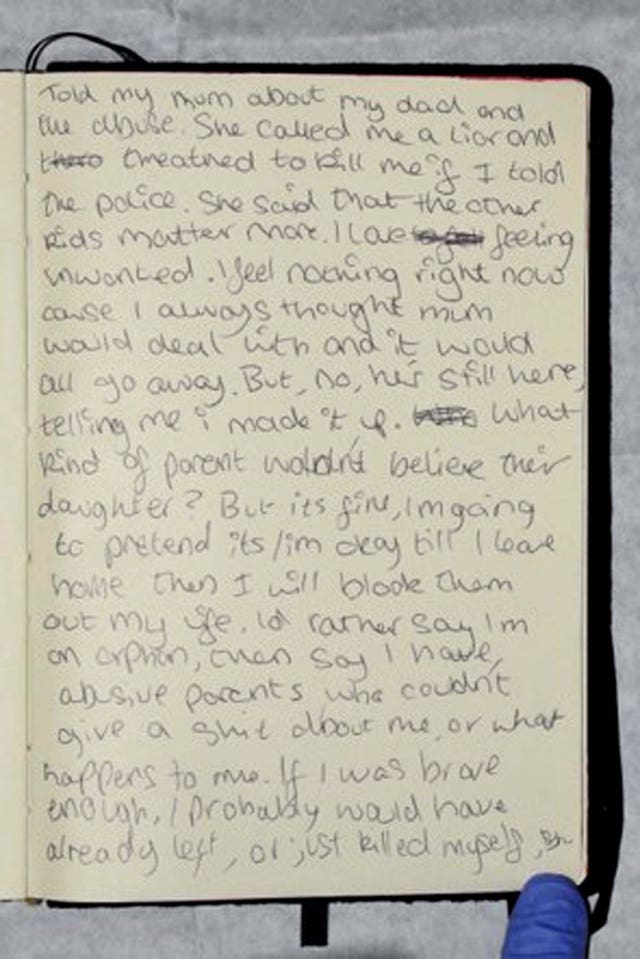 Told my mum about my dad and
the abuse. She called me a liar and
threatned to kill me if I told
the police. She said that the other
kids matter more. I love feeling
unwanted. I feel nothing right now
cause I always thought mum
would deal with and it would
all go away. But, no, he's still here,
telling me i made it up. What
kind of parent wouldn't believe their
daughter? But its fine, Im going
to pretend its/im okay till I leave
home then I will block them
out my life. Id rather say Im
an orphan, then say I have
abusive parents who couldn't
give a shit about me, or what
happens to me. If I was brave
enough, I probably would have
already left, or just killed myself,